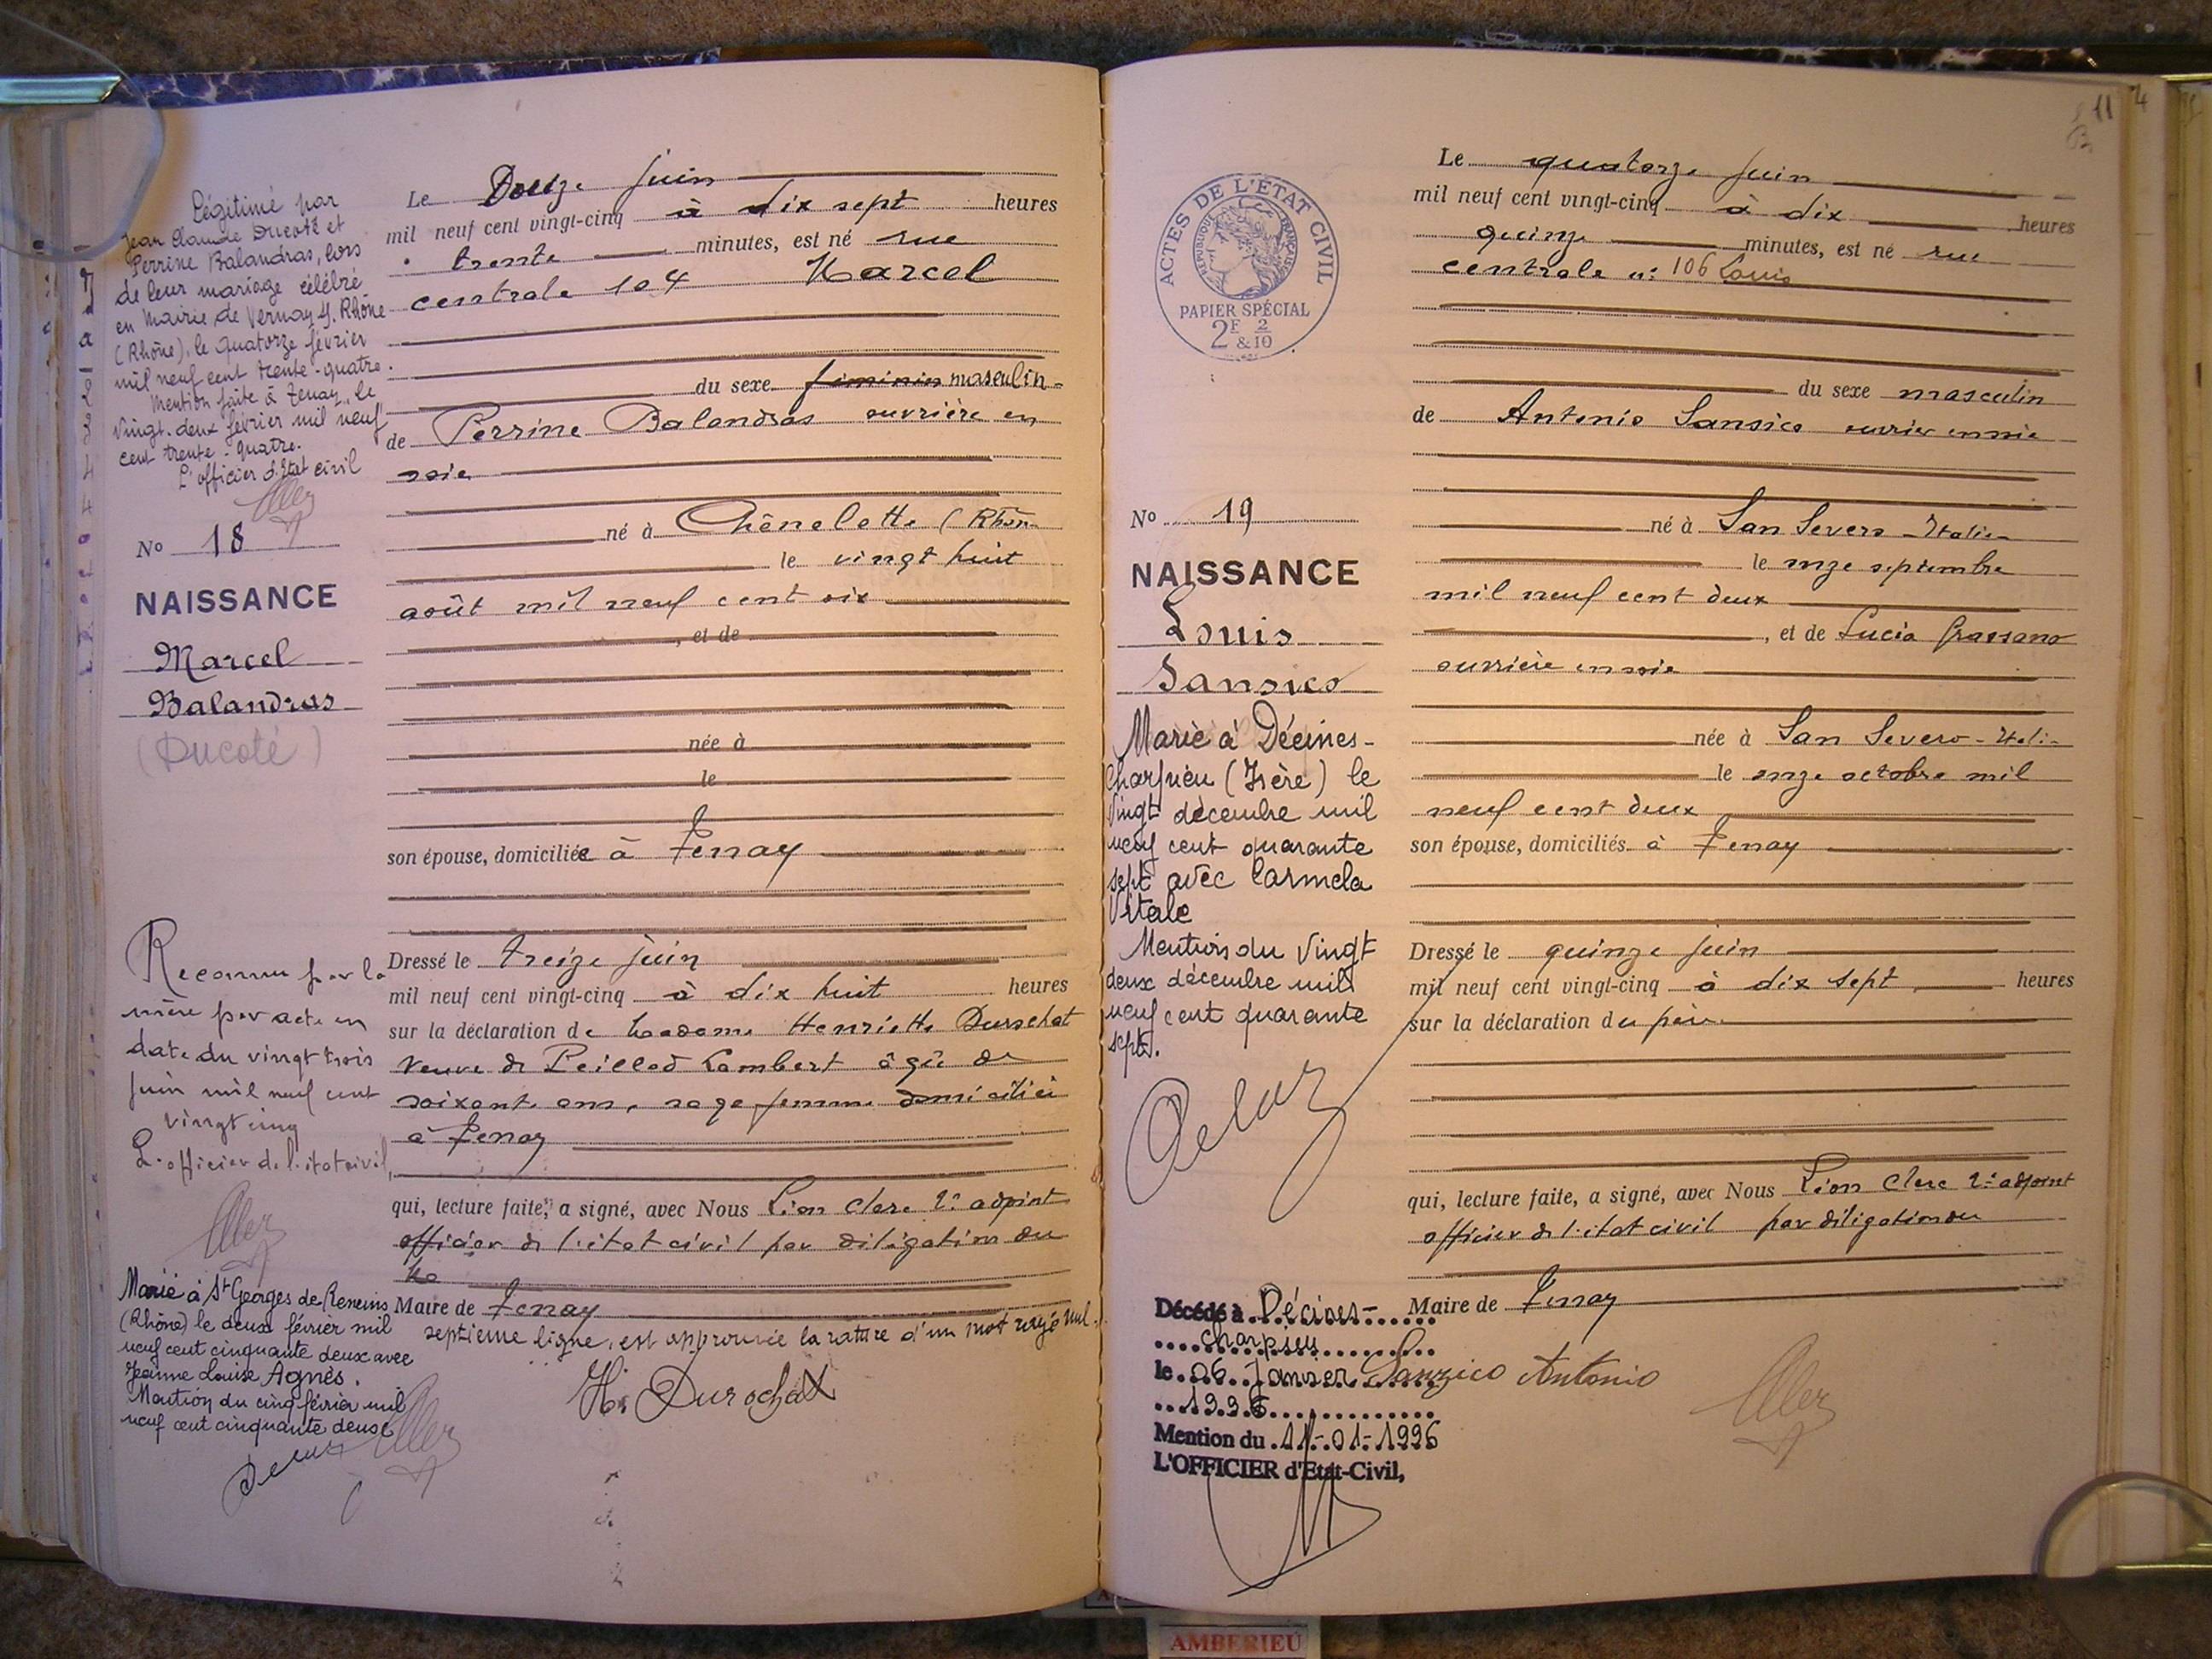 Légitimé par
Jean Claude Ducoté et
Perrine Balandras, lors
de leur mariage célébré
en Mairie de Vernay y. Rhône
(Rhône), le quatorze février
mil neuf cent trente-quatre.
Mention faite à Tenay, le
vingt-deux février mil neuf
cent trente-quatre.
L'officier d'Etat civil
No 18
NAISSANCE
Marcel
Balandras
(Ducoté)
Reconnu par la
mère par acte en
date du vingt trois
juin mil neuf cent
vingt cinq
L'officier de l'état civil,
Marié à St Georges de Reneins
(Rhône) le deux février mil
neuf cent cinquante deux avec
Jeanne Louise Agnès.
Mention du cinq février mil
neuf cent cinquante deux
Le Douze juin
mil neuf cent vingt-cinq à dix sept heures
trente minutes, est né rue
centrale 104 Marcel
du sexe féminin masculin
de Perrine Balandras ouvrière en
soie
né à Chênelette (Rhône
le vingt huit
août mil neuf cent six
, et de
née à
le
son épouse, domiciliée à Tenay
Dressé le treize juin
mil neuf cent vingt-cinq à dix huit heures
sur la déclaration de Madame Henriette Durochat
veuve de Peillod Lambert âgée de
soixante ans, sage femme domiciliée
à Tenay
qui, lecture faite, a signé, avec Nous Léon Clerc 2e adjoint
officier de l'état civil par délégation du
Maire de Tenay
septième ligne, est approuvée la rature d'un mot rayé nul.
H. Durochat
11
4
ACTES DE L'ETAT CIVIL
REPUBLIQUE FRANÇAISE
PAPIER SPÉCIAL
2F 2
& 10
No 19
NAISSANCE
Louis
Sansico
Marié à Décines-
Charpieu (Isère) le
vingt décembre mil
neuf cent quarante
sept avec Carmela
Vitale
Mention du vingt
deux décembre mil
neuf cent quarante
sept.
Décédé à Décines-
Charpieu
le 06 Janvier
1996
Mention du 11-01-1996
L'OFFICIER d'Etat-Civil,
Le quatorze juin
mil neuf cent vingt-cinq à dix heures
quinze minutes, est né rue
centrale n: 106 Louis
du sexe masculin
de Antonio Sansico ouvrier en soie
né à San Severo - Italie
le onze septembre
mil neuf cent deux
, et de Lucia Grassano
ouvrière en soie
née à San Severo - Itali-
le onze octobre mil
neuf cent deux
son épouse, domiciliés à Tenay
Dressé le quinze juin
mil neuf cent vingt-cinq à dix sept heures
sur la déclaration du père
qui, lecture faite, a signé, avec Nous Léon Clerc 2e adjoint
officier de l'état civil par délégation du
Maire de Tenay
Sanzico Antonio
AMBERIEU